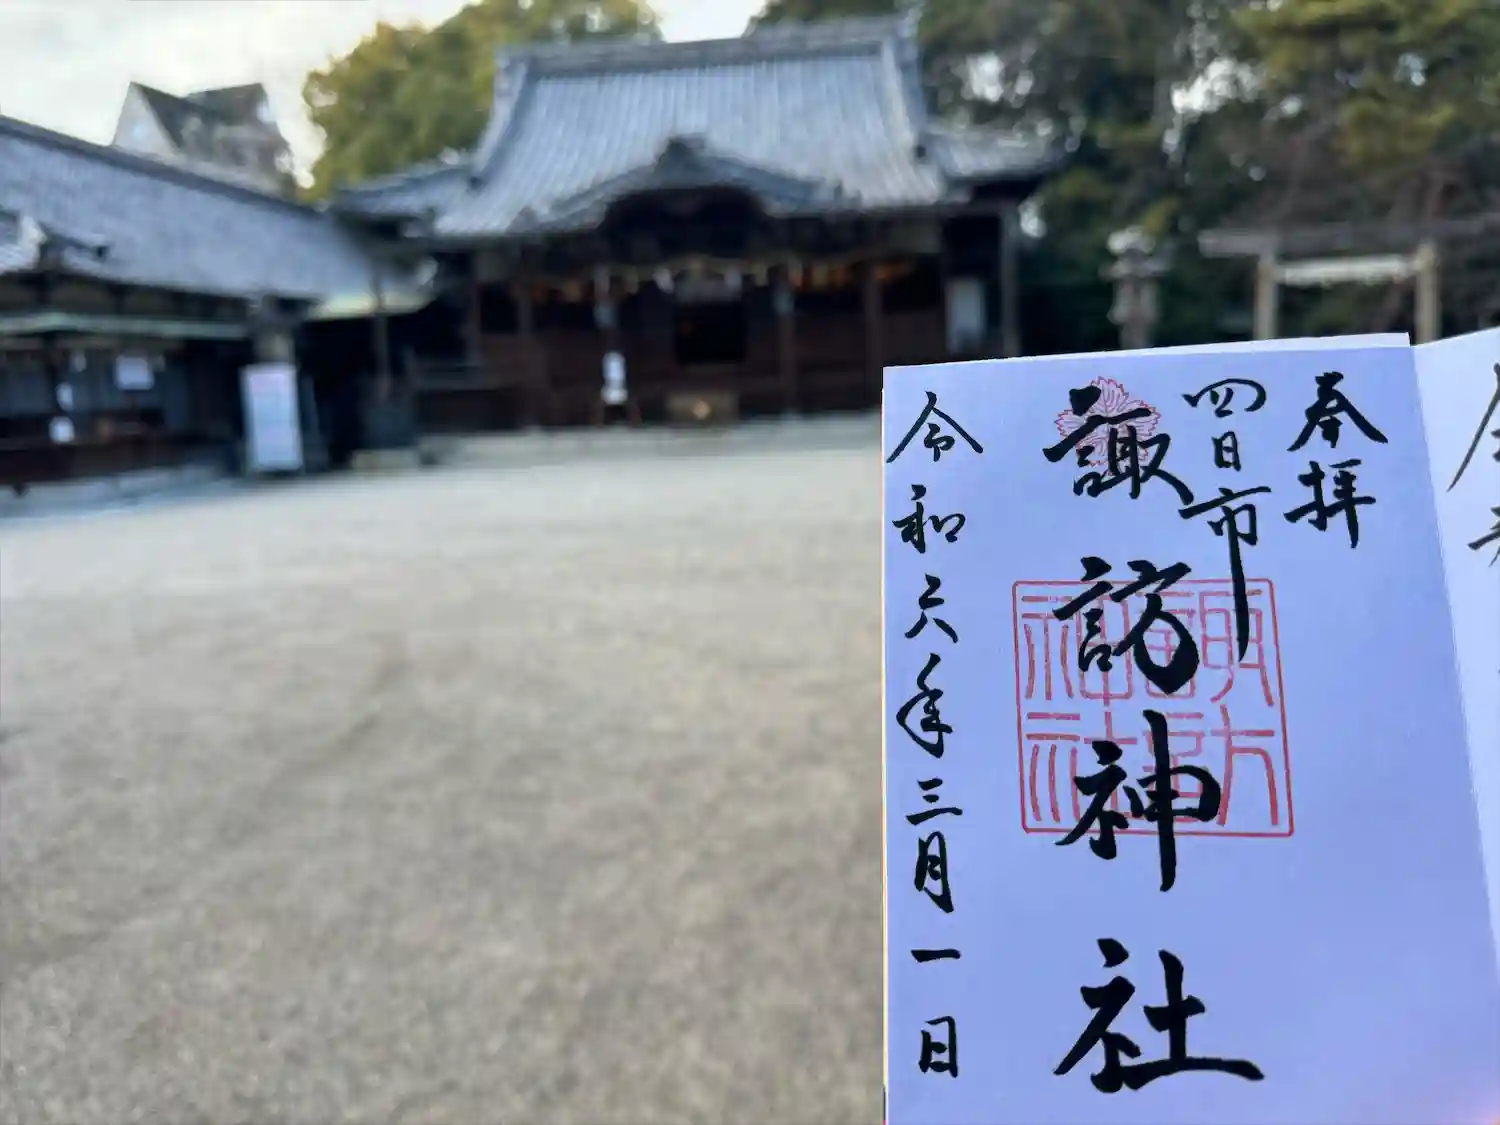 奉拝
四日市
諏訪神社
諏訪神社
令和六年三月一日